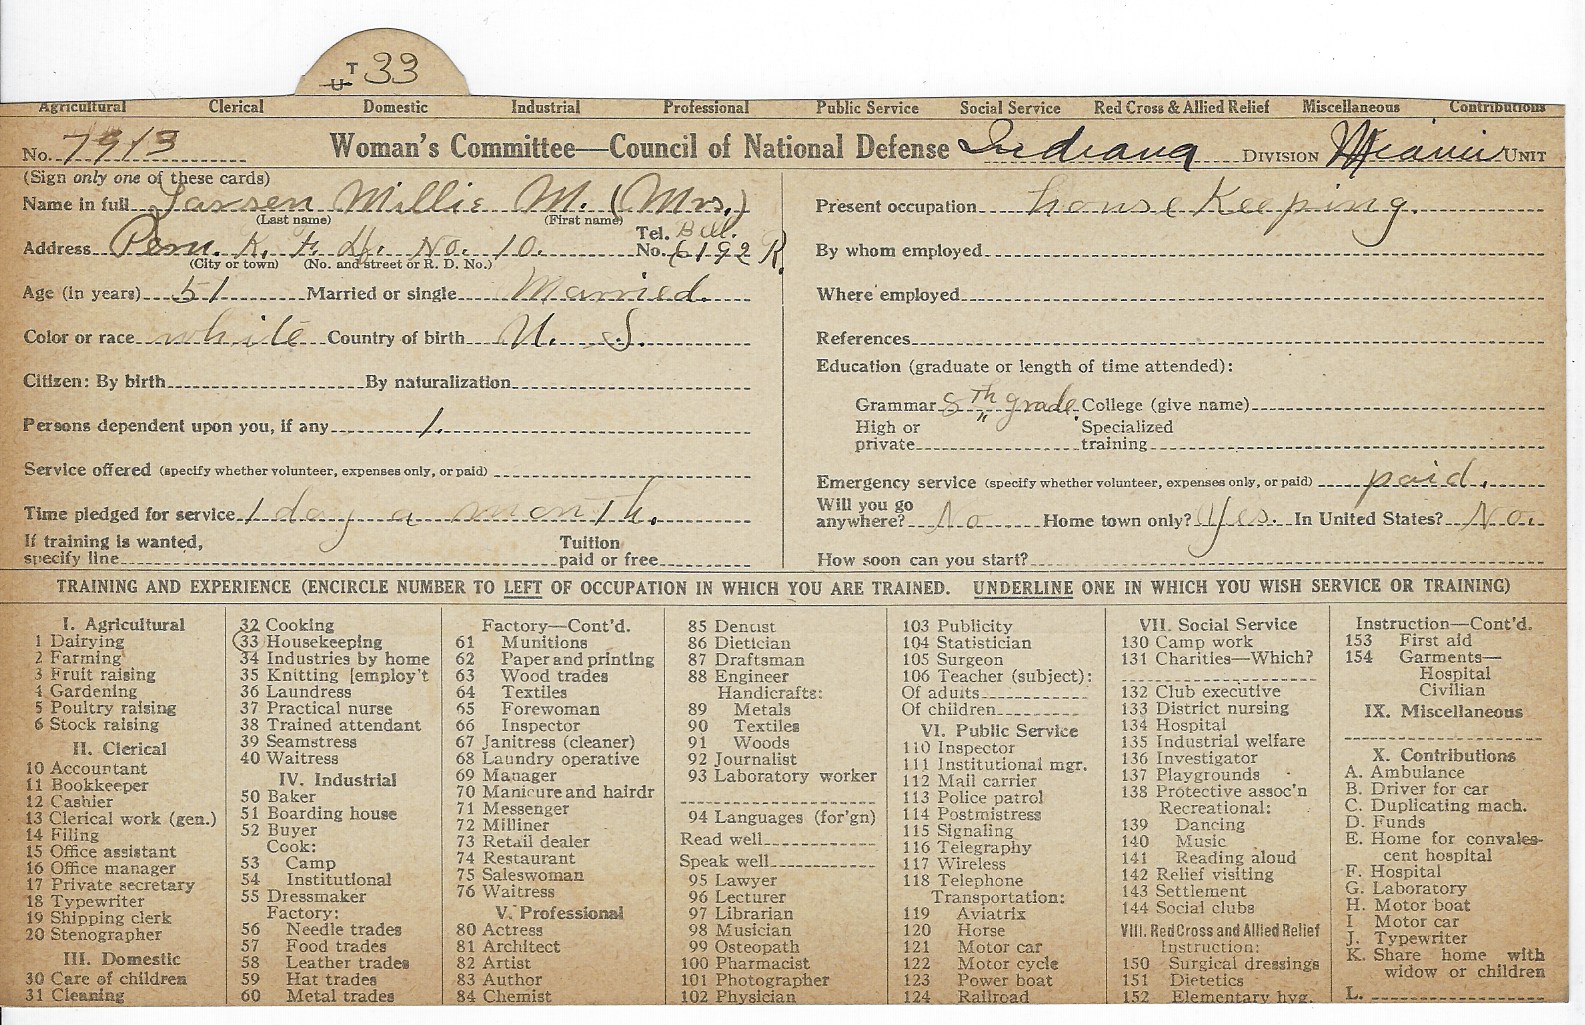 T 33
U
Agricultural Clerical Domestic Industrial Professional Public Service Social Service Red Cross & Allied Relief Miscellaneous Contributions
No. 7913 Woman's Committee—Council of National Defense Indiana DIVISION UNIT
(Sign only one of these cards)
Name in full Millie M. (Mrs.)
(Last name) (First name)
Address Peru. R. F. D. No. 10. Tel. No. Bell. 6192 R
(City or town) (No. and street or R. D. No.)
Age (in years) 51 Married or single Married.
Color or race white Country of birth U. S.
Citizen: By birth By naturalization
Persons dependent upon you, if any 1.
Service offered (specify whether volunteer, expenses only, or paid)
Time pledged for service 1 day a month.
If training is wanted, specify line Tuition paid or free
Present occupation house Keeping.
By whom employed
Where employed
References
Education (graduate or length of time attended):
Grammar 8th grade. College (give name)
High or private Specialized training
Emergency service (specify whether volunteer, expenses only, or paid) paid.
Will you go anywhere? No Home town only? Yes. In United States? No.
How soon can you start?
TRAINING AND EXPERIENCE (ENCIRCLE NUMBER TO LEFT OF OCCUPATION IN WHICH YOU ARE TRAINED. UNDERLINE ONE IN WHICH YOU WISH SERVICE OR TRAINING)
I. Agricultural
1 Dairying
2 Farming
3 Fruit raising
4 Gardening
5 Poultry raising
6 Stock raising
II. Clerical
10 Accountant
11 Bookkeeper
12 Cashier
13 Clerical work (gen.)
14 Filing
15 Office assistant
16 Office manager
17 Private secretary
18 Typewriter
19 Shipping clerk
20 Stenographer
III. Domestic
30 Care of children
31 Cleaning
32 Cooking
33 Housekeeping
34 Industries by home
35 Knitting [employ't
36 Laundress
37 Practical nurse
38 Trained attendant
39 Seamstress
40 Waitress
IV. Industrial
50 Baker
51 Boarding house
52 Buyer
Cook:
53 Camp
54 Institutional
55 Dressmaker
Factory:
56 Needle trades
57 Food trades
58 Leather trades
59 Hat trades
60 Metal trades
Factory—Cont'd.
61 Munitions
62 Paper and printing
63 Wood trades
64 Textiles
65 Forewoman
66 Inspector
67 Janitress (cleaner)
68 Laundry operative
69 Manager
70 Manicure and hairdr
71 Messenger
72 Milliner
73 Retail dealer
74 Restaurant
75 Saleswoman
76 Waitress
V. Professional
80 Actress
81 Architect
82 Artist
83 Author
84 Chemist
85 Dentist
86 Dietician
87 Draftsman
88 Engineer
Handicrafts:
89 Metals
90 Textiles
91 Woods
92 Journalist
93 Laboratory worker
94 Languages (for'gn)
Read well
Speak well
95 Lawyer
96 Lecturer
97 Librarian
98 Musician
99 Osteopath
100 Pharmacist
101 Photographer
102 Physician
103 Publicity
104 Statistician
105 Surgeon
106 Teacher (subject):
Of adults
Of children
VI. Public Service
110 Inspector
111 Institutional mgr.
112 Mail carrier
113 Police patrol
114 Postmistress
115 Signaling
116 Telegraphy
117 Wireless
118 Telephone
Transportation:
119 Aviatrix
120 Horse
121 Motor car
122 Motor cycle
123 Power boat
124 Railroad
VII. Social Service
130 Camp work
131 Charities—Which?
132 Club executive
133 District nursing
134 Hospital
135 Industrial welfare
136 Investigator
137 Playgrounds
138 Protective assoc'n
Recreational:
139 Dancing
140 Music
141 Reading aloud
142 Relief visiting
143 Settlement
144 Social clubs
VIII. Red Cross and Allied Relief
Instruction:
150 Surgical dressings
151 Dietetics
152 Elementary hyg.
Instruction—Cont'd.
153 First aid
154 Garments—
Hospital
Civilian
IX. Miscellaneous
X. Contributions
A. Ambulance
B. Driver for car
C. Duplicating mach.
D. Funds
E. Home for convales-
cent hospital
F. Hospital
G. Laboratory
H. Motor boat
I Motor car
J. Typewriter
K. Share home with
widow or children
L.